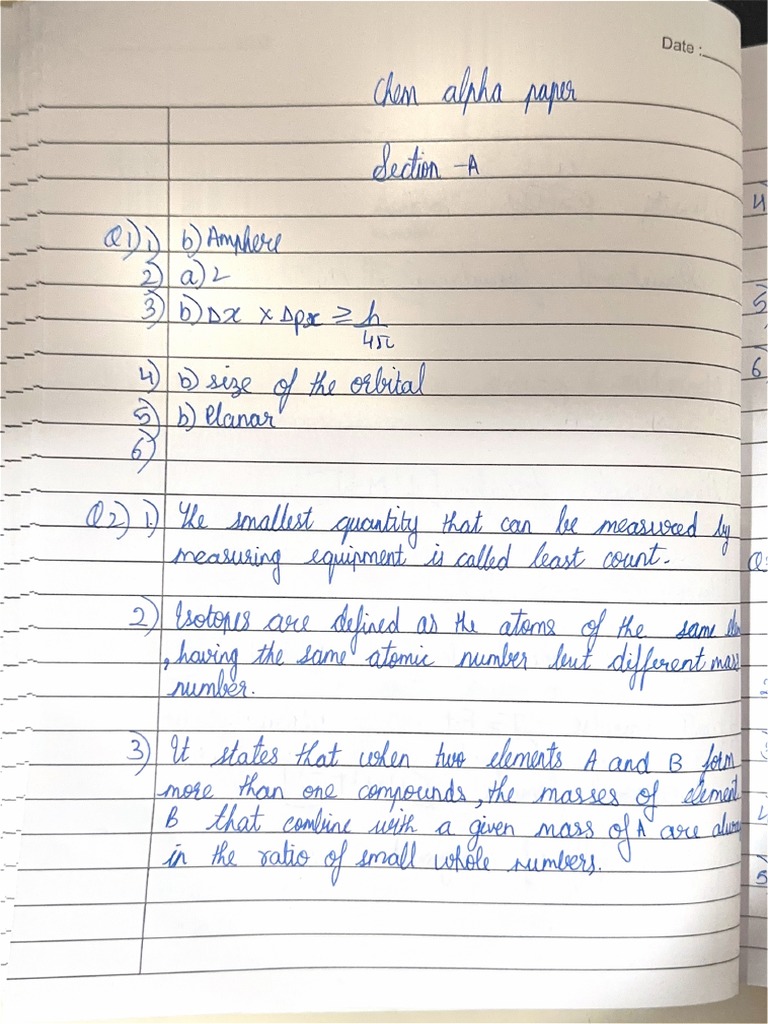 Date :
Chem alpha paper
Section - A
Q1) 1) b) Amphere
2) a) 2
3) b) Δx × Δpx ≥ h/4π
4) b) size of the orbital
5) b) Planar
6)
Q2) 1.) The smallest quantity that can be measured by
measuring equipment is called least count.
2) Isotopes are defined as the atoms of the same ele
, having the same atomic number but different mass
number.
3) It states that when two elements A and B form
more than one compounds, the masses of element
B that combine with a given mass of A are alwa
in the ratio of small whole numbers.
4
5
6
Q
5